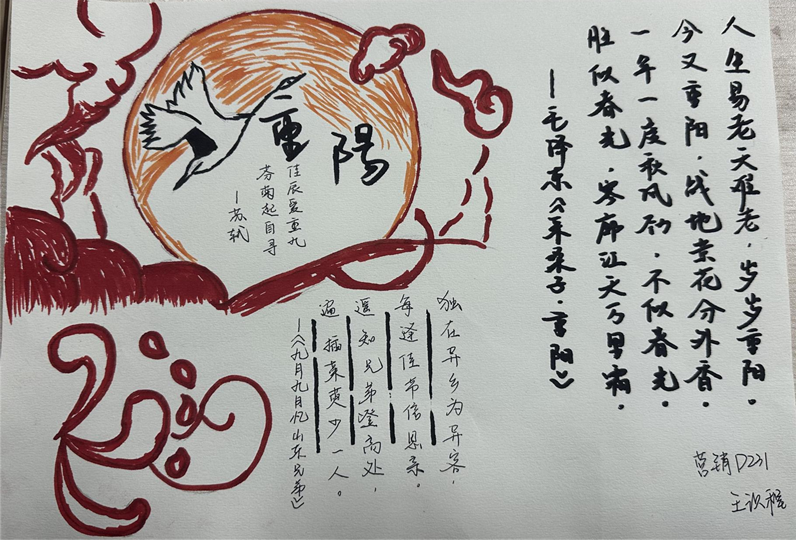 人生易老天难老，岁岁重阳。
今又重阳，战地黄花分外香。
一年一度秋风劲，不似春光。
胜似春光，寥廓江天万里霜。
—毛泽东《采桑子·重阳》
重陽
佳辰爱重九
芬菊起自寻
—苏轼
独在异乡为异客，
每逢佳节倍思亲。
遥知兄弟登高处，
遍插茱萸少一人。
—《九月九日忆山东兄弟》
营销D231